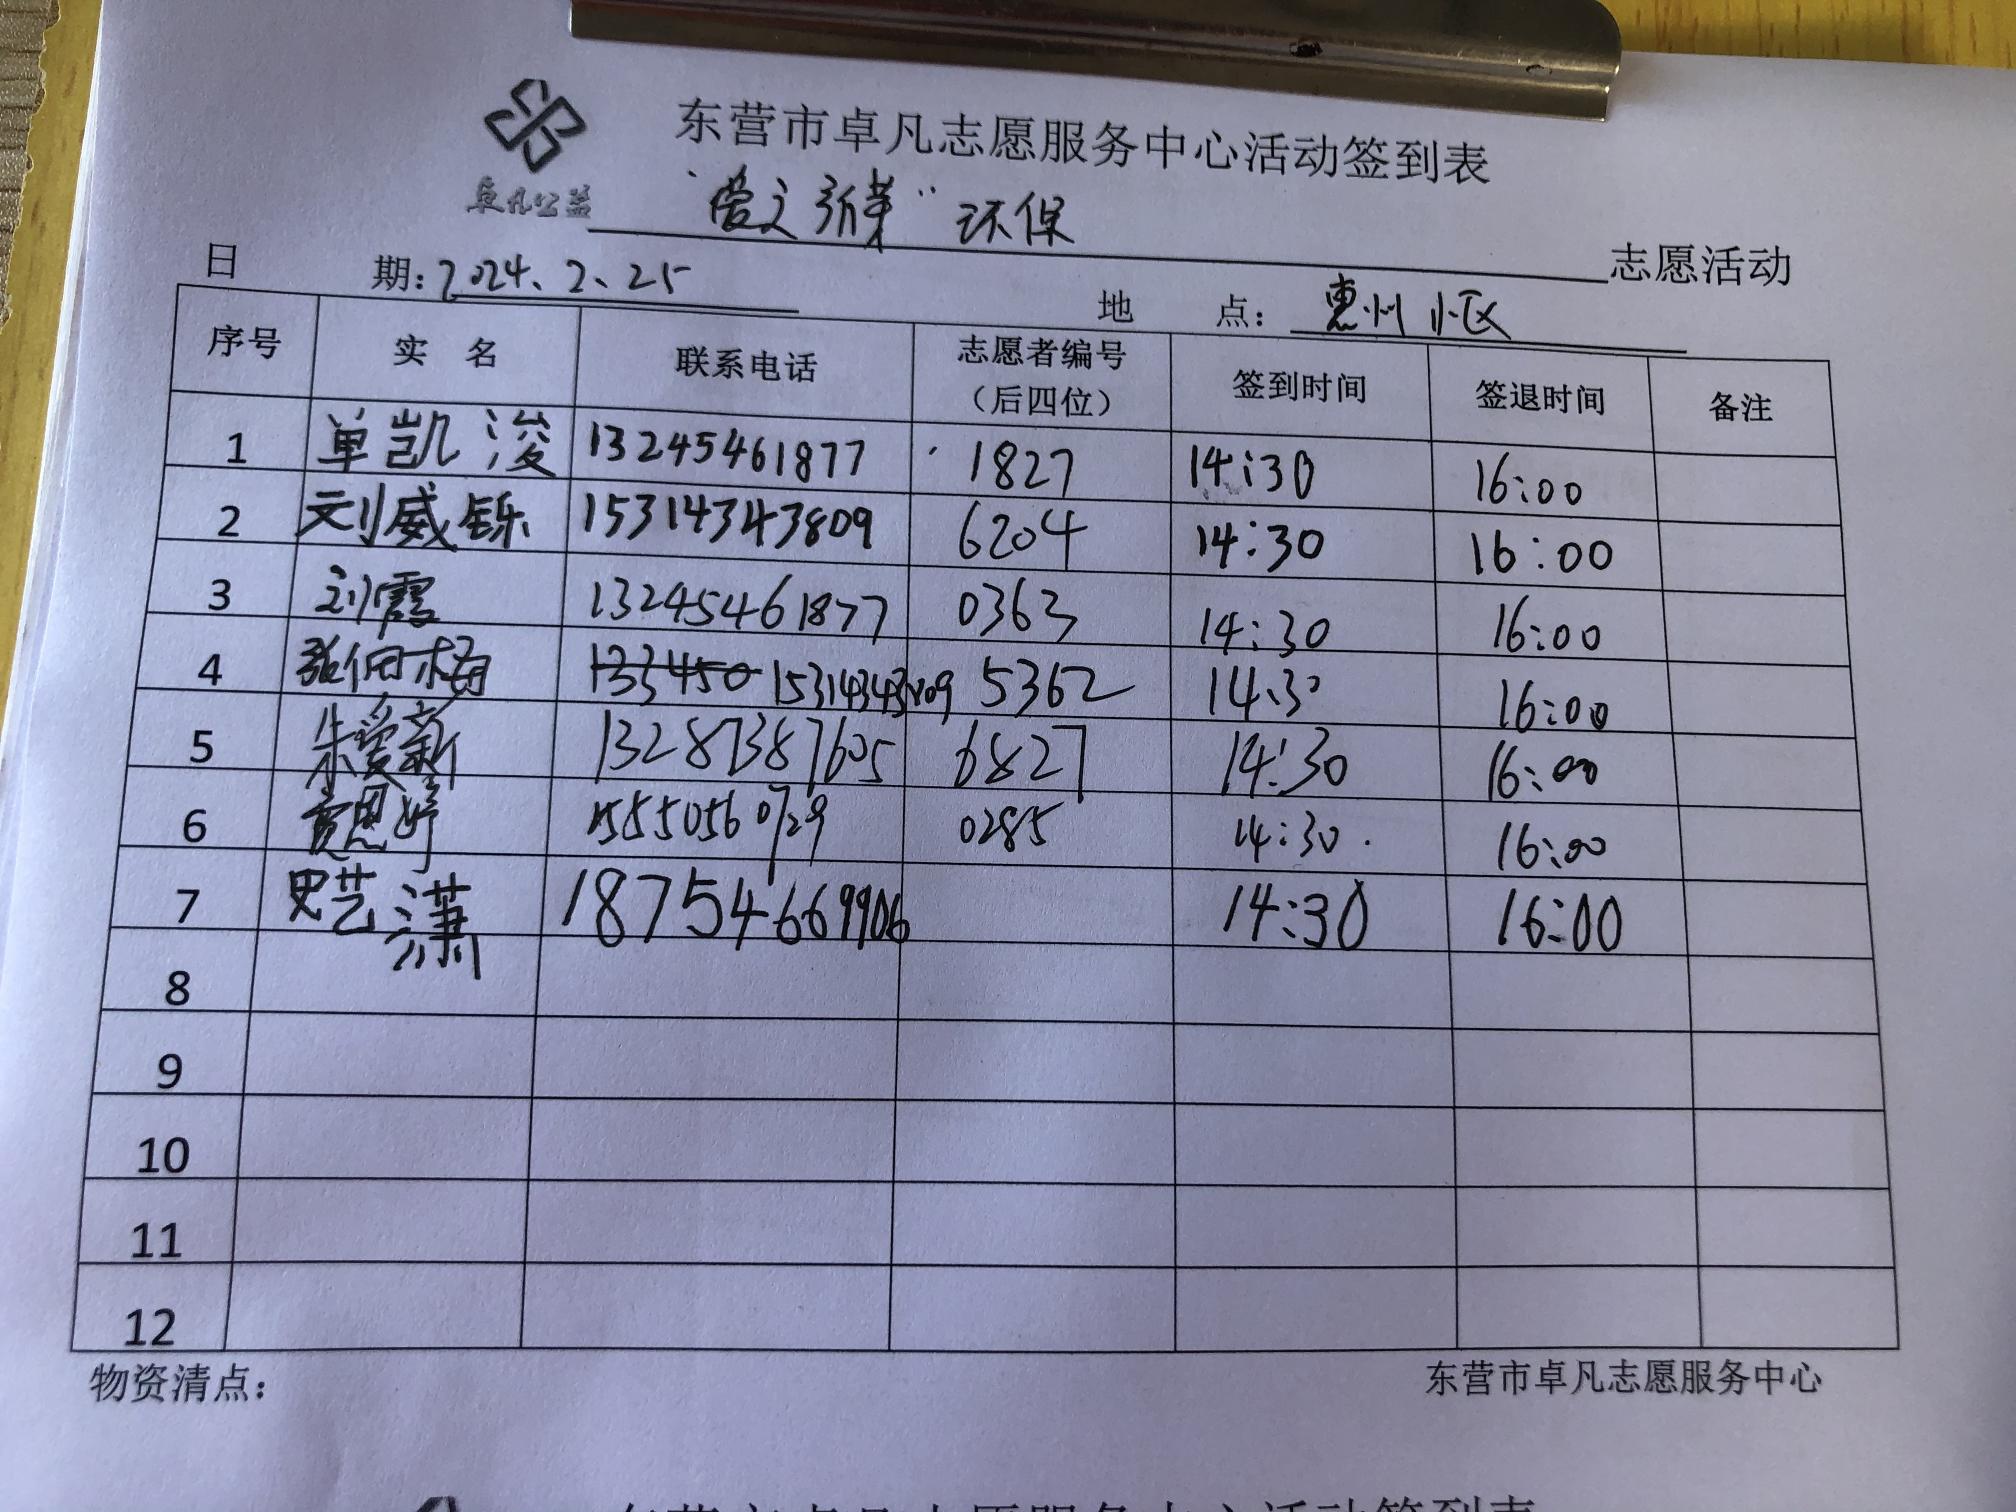 东营市卓凡志愿服务中心活动签到表
卓凡公益
“爱之新芽”环保 志愿活动
日期：2024.2.25 地点：惠州小区
序号 实名 联系电话 志愿者编号（后四位） 签到时间 签退时间 备注
1 单凯浚 13245461877 1827 14:30 16:00
2 刘威铄 15314343809 6204 14:30 16:00
3 刘霞 13245461877 0363 14:30 16:00
4 张佃梅 133450 15314343809 5362 14:30 16:00
5 朱爱新 13287387605 6827 14:30 16:00
6 贾恩婷 15550560729 0285 14:30 16:00
7 史艺潇 18754669906 14:30 16:00
8
9
10
11
12
物资清点： 东营市卓凡志愿服务中心
东营市卓凡志愿服务中心活动签到表